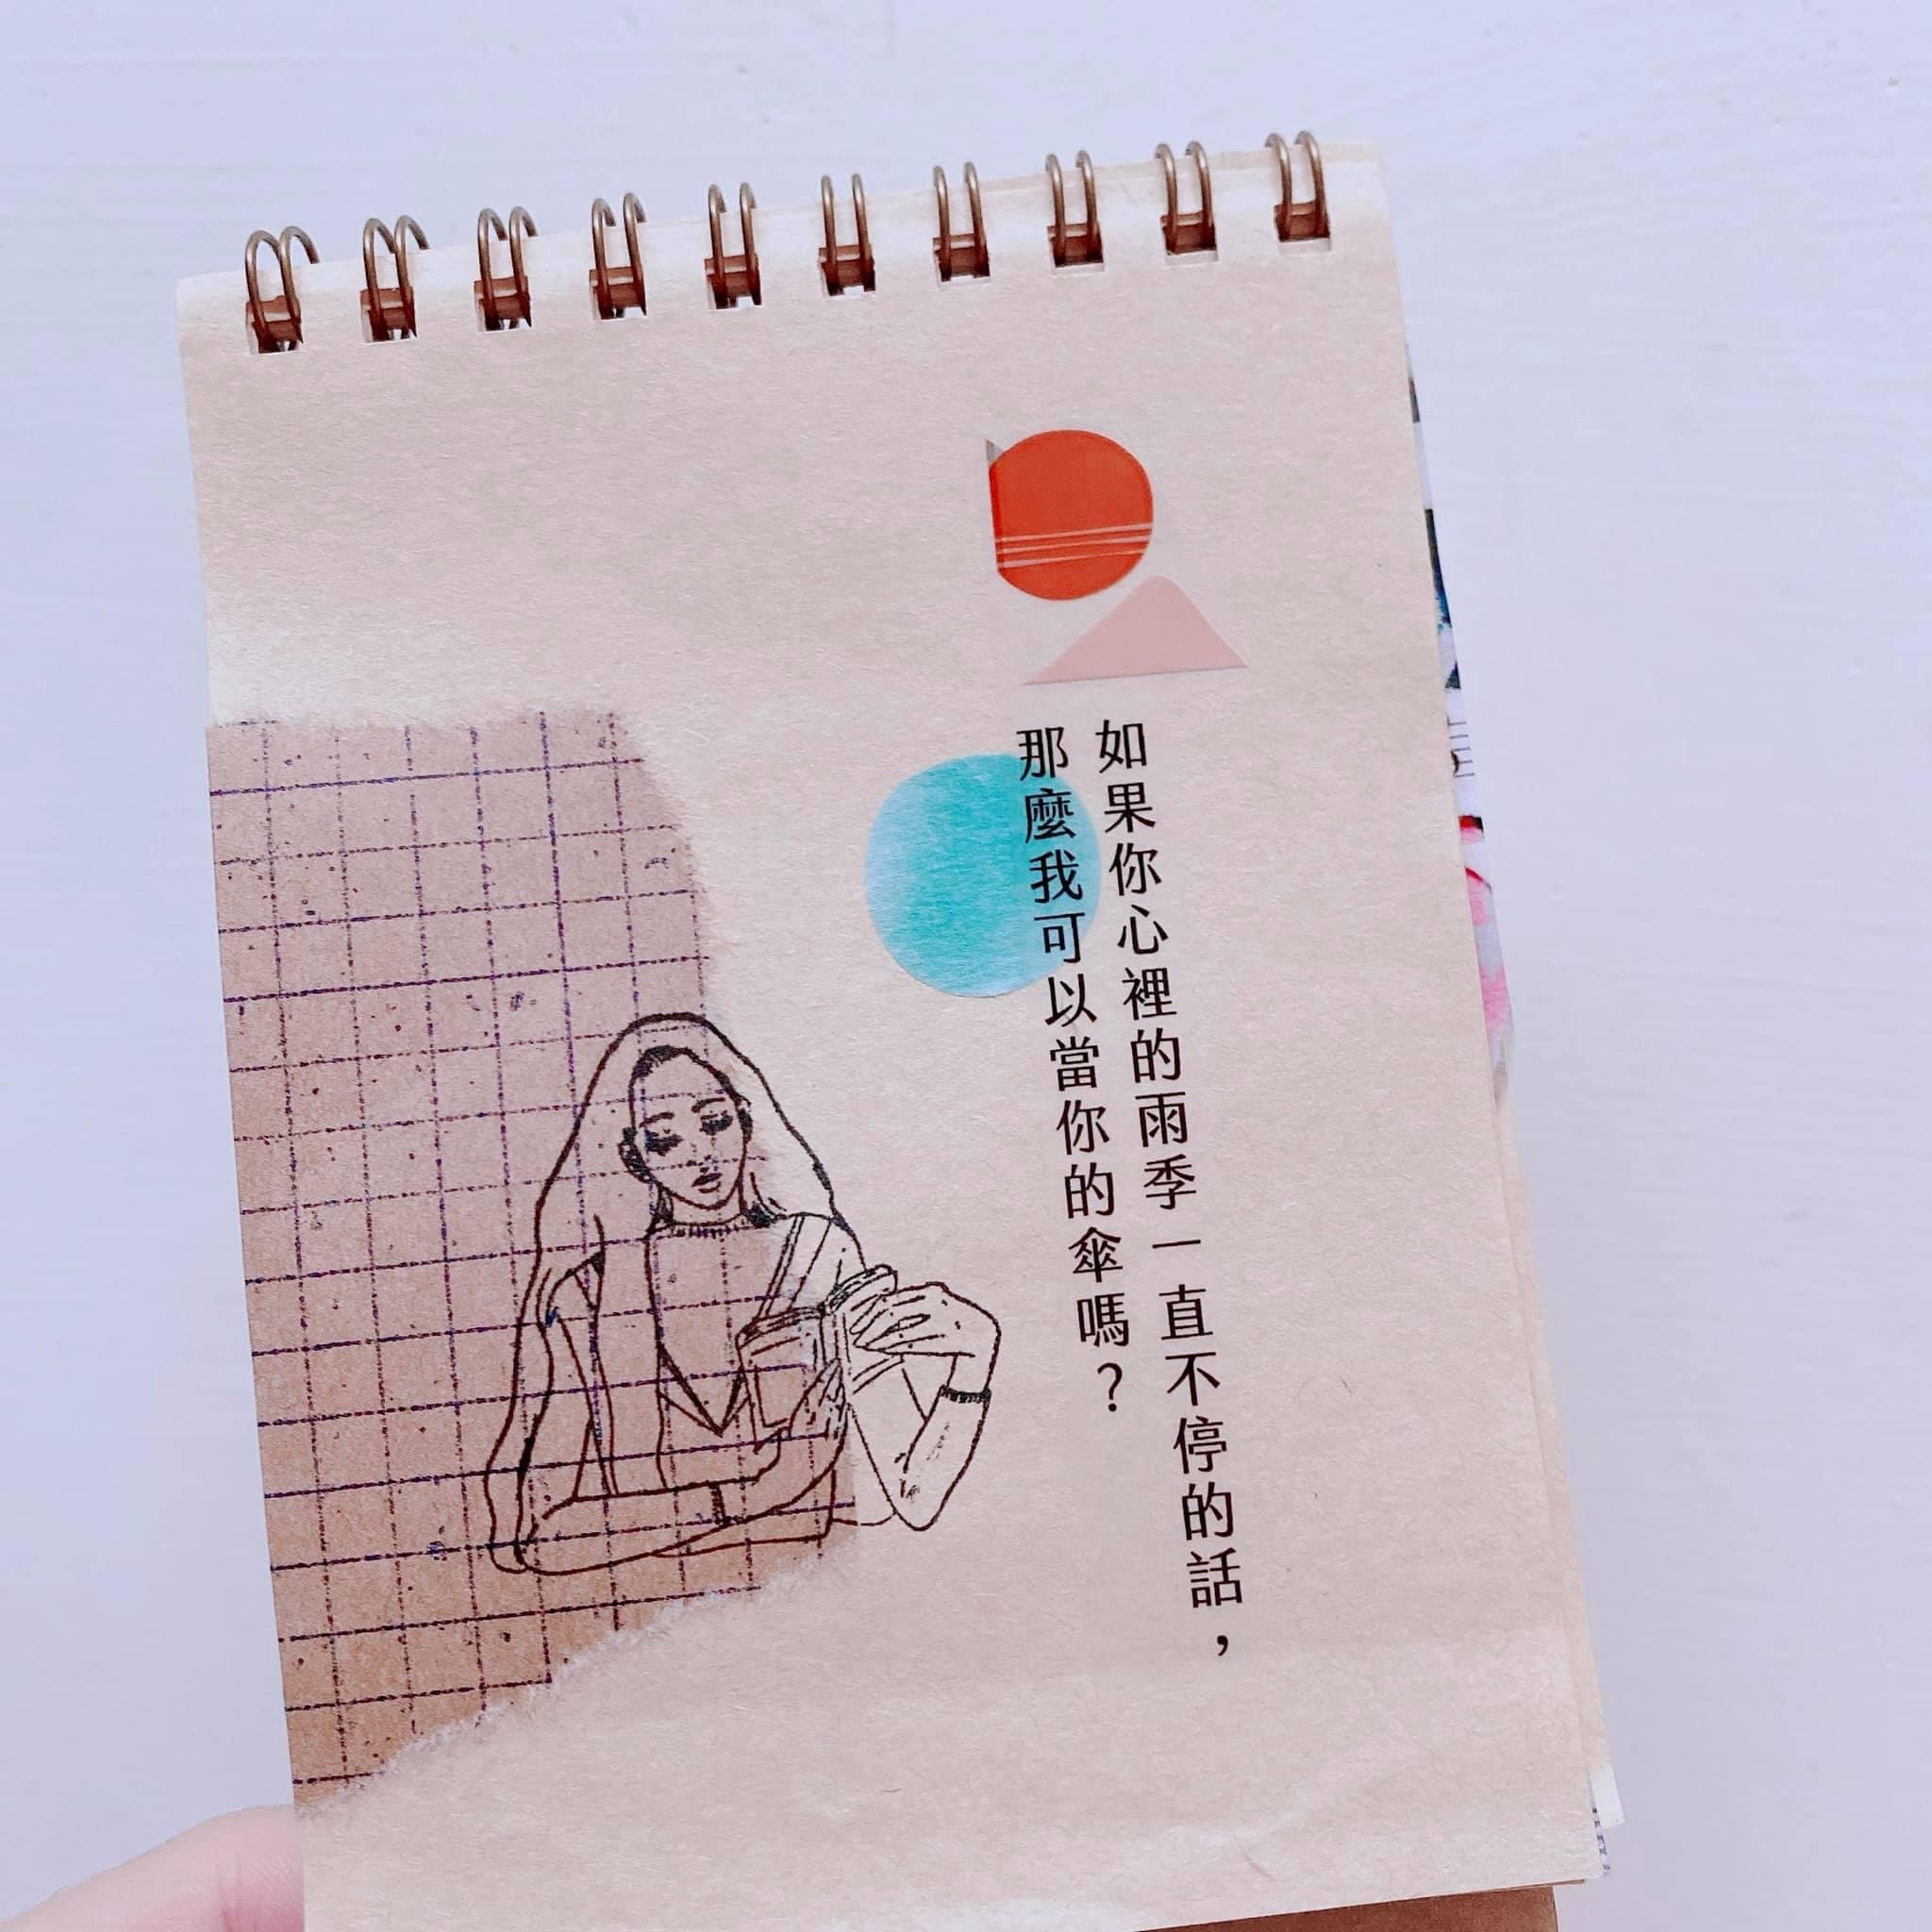 如果你心裡的雨季一直不停的話，
那麼我可以當你的傘嗎？